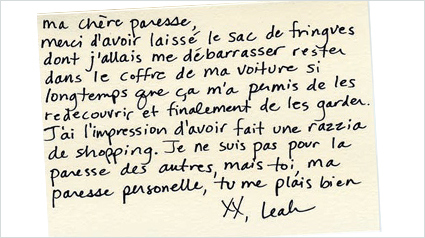 ma chère paresse,
merci d'avoir laissé le sac de fringues
dont j'allais me débarrasser rester
dans le coffre de ma voiture si
longtemps que ça m'a permis de les
redécouvrir et finalement de les garder.
J'ai l'impression d'avoir fait une razzia
de shopping. Je ne suis pas pour la
paresse des autres, mais toi, ma
paresse personelle, tu me plais bien
XX, Leah